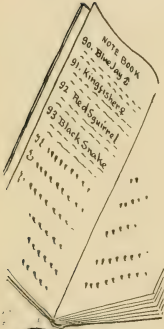 NOTE BOOK
90. Blue Jay
91. Kingfisher
92 Red Squirrel
93 Black Snake